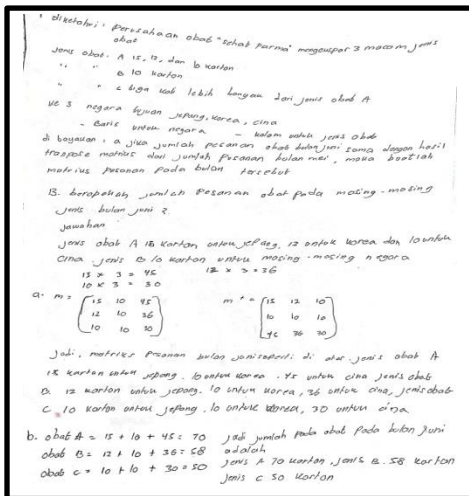 diketahui : Perusahaan obat "Sehat Parma" mengekspor 3 macam jenis
obat
jenis obat. A 15, 12, dan 10 karton
" " B 10 karton
" " C tiga kali lebih banyak dari jenis obat A
ke 3 negara tujuan jepang, korea, cina
- baris untuk negara - kolom untuk jenis obat
di tanyakan : a jika jumlah pesanan obat bulan juni sama dengan hasil
transpose matriks dari jumlah pesanan bulan mei, maka buatlah
matriks pesanan pada bulan tersebut
B. berapakah jumlah pesanan obat pada masing-masing
jenis bulan juni ?
jawaban
jenis obat A 15 karton untuk jepang, 12 untuk korea dan 10 untuk
cina jenis B 10 karton untuk masing-masing negara
15 x 3 = 45 12 x 3 = 36
10 x 3 = 30
a. m = [15 10 45 m t = [15 12 10
12 10 36 10 10 10
10 10 30] 45 36 30]
jadi, matriks pesanan bulan juni seperti di atas. jenis obat A
15 karton untuk jepang. 10 untuk korea. 45 untuk cina jenis obat
B. 12 karton untuk jepang. 10 untuk korea, 36 untuk cina, jenis obat
C. 10 karton untuk jepang. 10 untuk korea, 30 untuk cina
b. obat A = 15 + 10 + 45 = 70 jadi jumlah pada obat pada bulan juni
obat B = 12 + 10 + 36 = 58 adalah
obat C = 10 + 10 + 30 = 50 jenis A 70 karton, jenis B. 58 karton
jenis C 50 karton